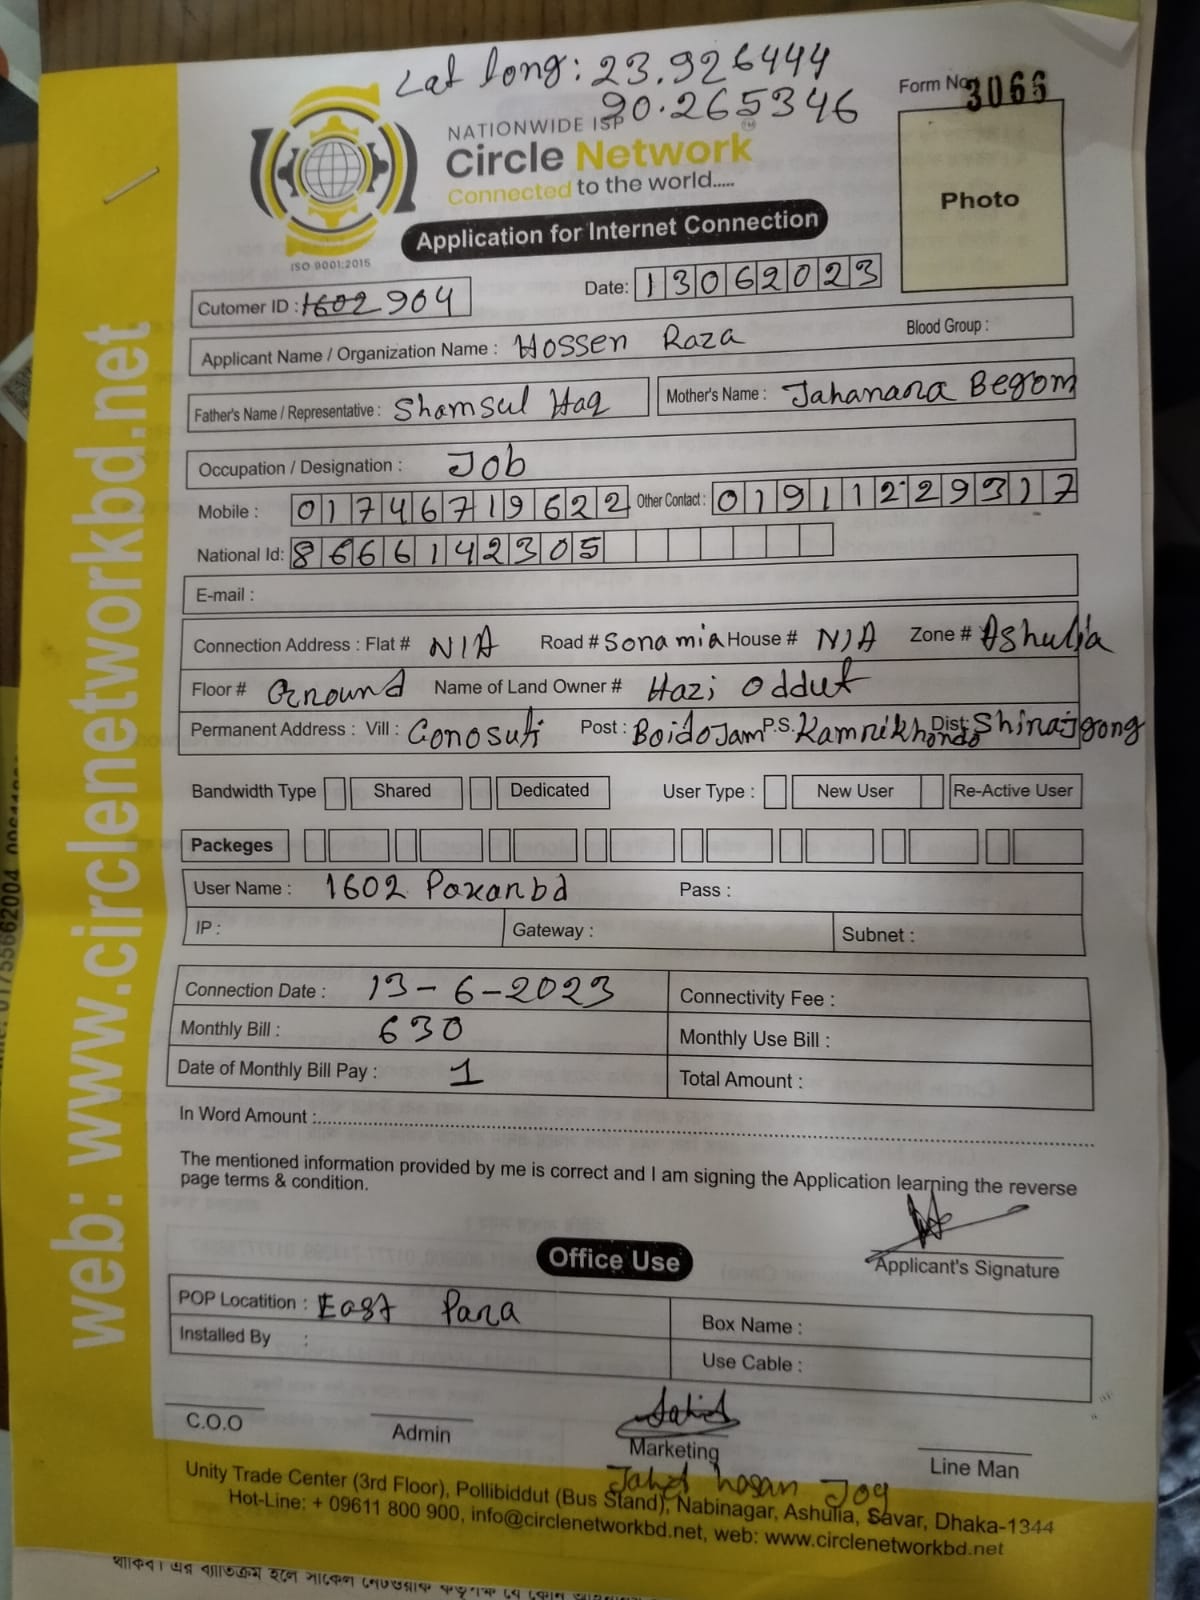 Lat long: 23.926444
90.265346
Form No. 3066
NATIONWIDE ISP
Circle Network
Connected to the world.....
ISO 9001:2015
Photo
Application for Internet Connection
Date: 13062023
Cutomer ID : 1602 904
Applicant Name / Organization Name : Hossen Raza Blood Group :
Father's Name / Representative : Shamsul Haq Mother's Name : Jahanara Begom
Occupation / Designation : Job
Mobile : 01746719622 Other Contact : 01911229317
National Id: 8666142305
E-mail :
Connection Address : Flat # N/A Road # Sonamia House # N/A Zone # Ashulia
Floor # Ground Name of Land Owner # Hazi Oddut
Permanent Address : Vill : Gonosuti Post : BoidoJam P.S. Kamrikhondo Dist: Shirajgong
Bandwidth Type Shared Dedicated User Type : New User Re-Active User
Packeges
User Name : 1602 Poxanbd Pass :
IP : Gateway : Subnet :
Connection Date : 13-6-2023 Connectivity Fee :
Monthly Bill : 630 Monthly Use Bill :
Date of Monthly Bill Pay : 1 Total Amount :
In Word Amount :
The mentioned information provided by me is correct and I am signing the Application learning the reverse
page terms & condition.
Applicant's Signature
Office Use
POP Locatition : East Para Box Name :
Installed By : Use Cable :
C.O.O Admin Marketing Line Man
Jahid hasan Joy
Unity Trade Center (3rd Floor), Pollibiddut (Bus Stand), Nabinagar, Ashulia, Savar, Dhaka-1344
Hot-Line: + 09611 800 900, info@circlenetworkbd.net, web: www.circlenetworkbd.net
web: www.circlenetworkbd.net